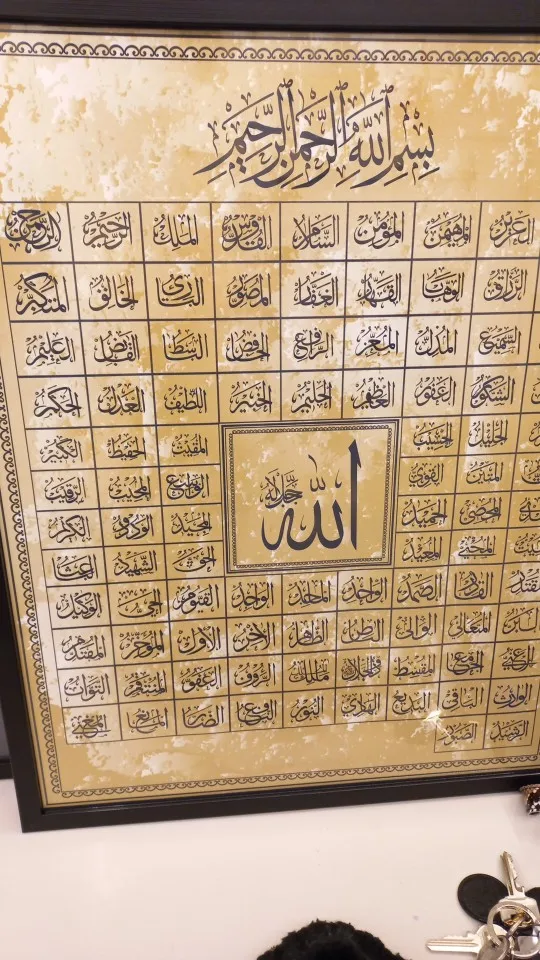 بسم الله الرحمن الرحيم
الرحمن الرحيم الملك القدوس السلام المؤمن المهيمن العزيز
المتكبر الخالق البارئ المصور الغفار القهار الوهاب الرزاق
العليم القابض الباسط الخافض الرافع المعز المذل السميع
الحكم العدل اللطيف الخبير الحليم العظيم الغفور الشكور
الكبير الحفيظ المقيت الحسيب الجليل
الرقيب المجيب الواسع القوي المتين
الله جل جلاله
الودود المجيد الحميد المحصي
الشهيد الحق المعيد المحيي
الوكيل الحي القيوم الواجد الماجد الواحد الصمد القادر
المؤخر الأول الآخر الظاهر الباطن الوالي المتعالي
التواب المنتقم العفو الرؤوف مالك المقسط الجامع الغني
المغني المانع الضار النافع النور الهادي البديع الباقي الوارث
الصبور الرشيد